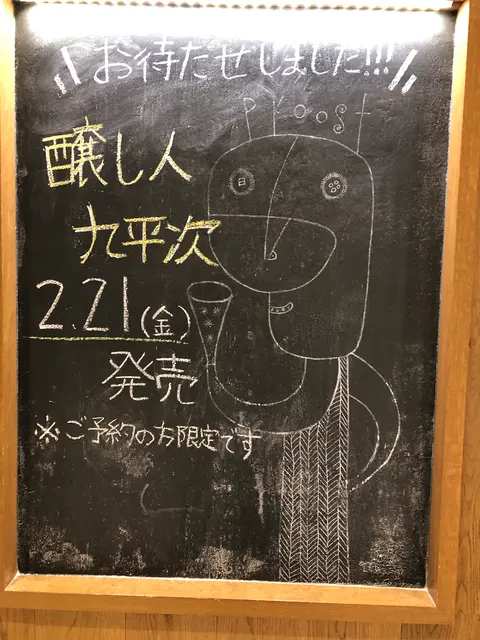 お待たせしました!!!
Proost
醸し人
九平次
2.21(金)
発売
※ご予約の方限定です